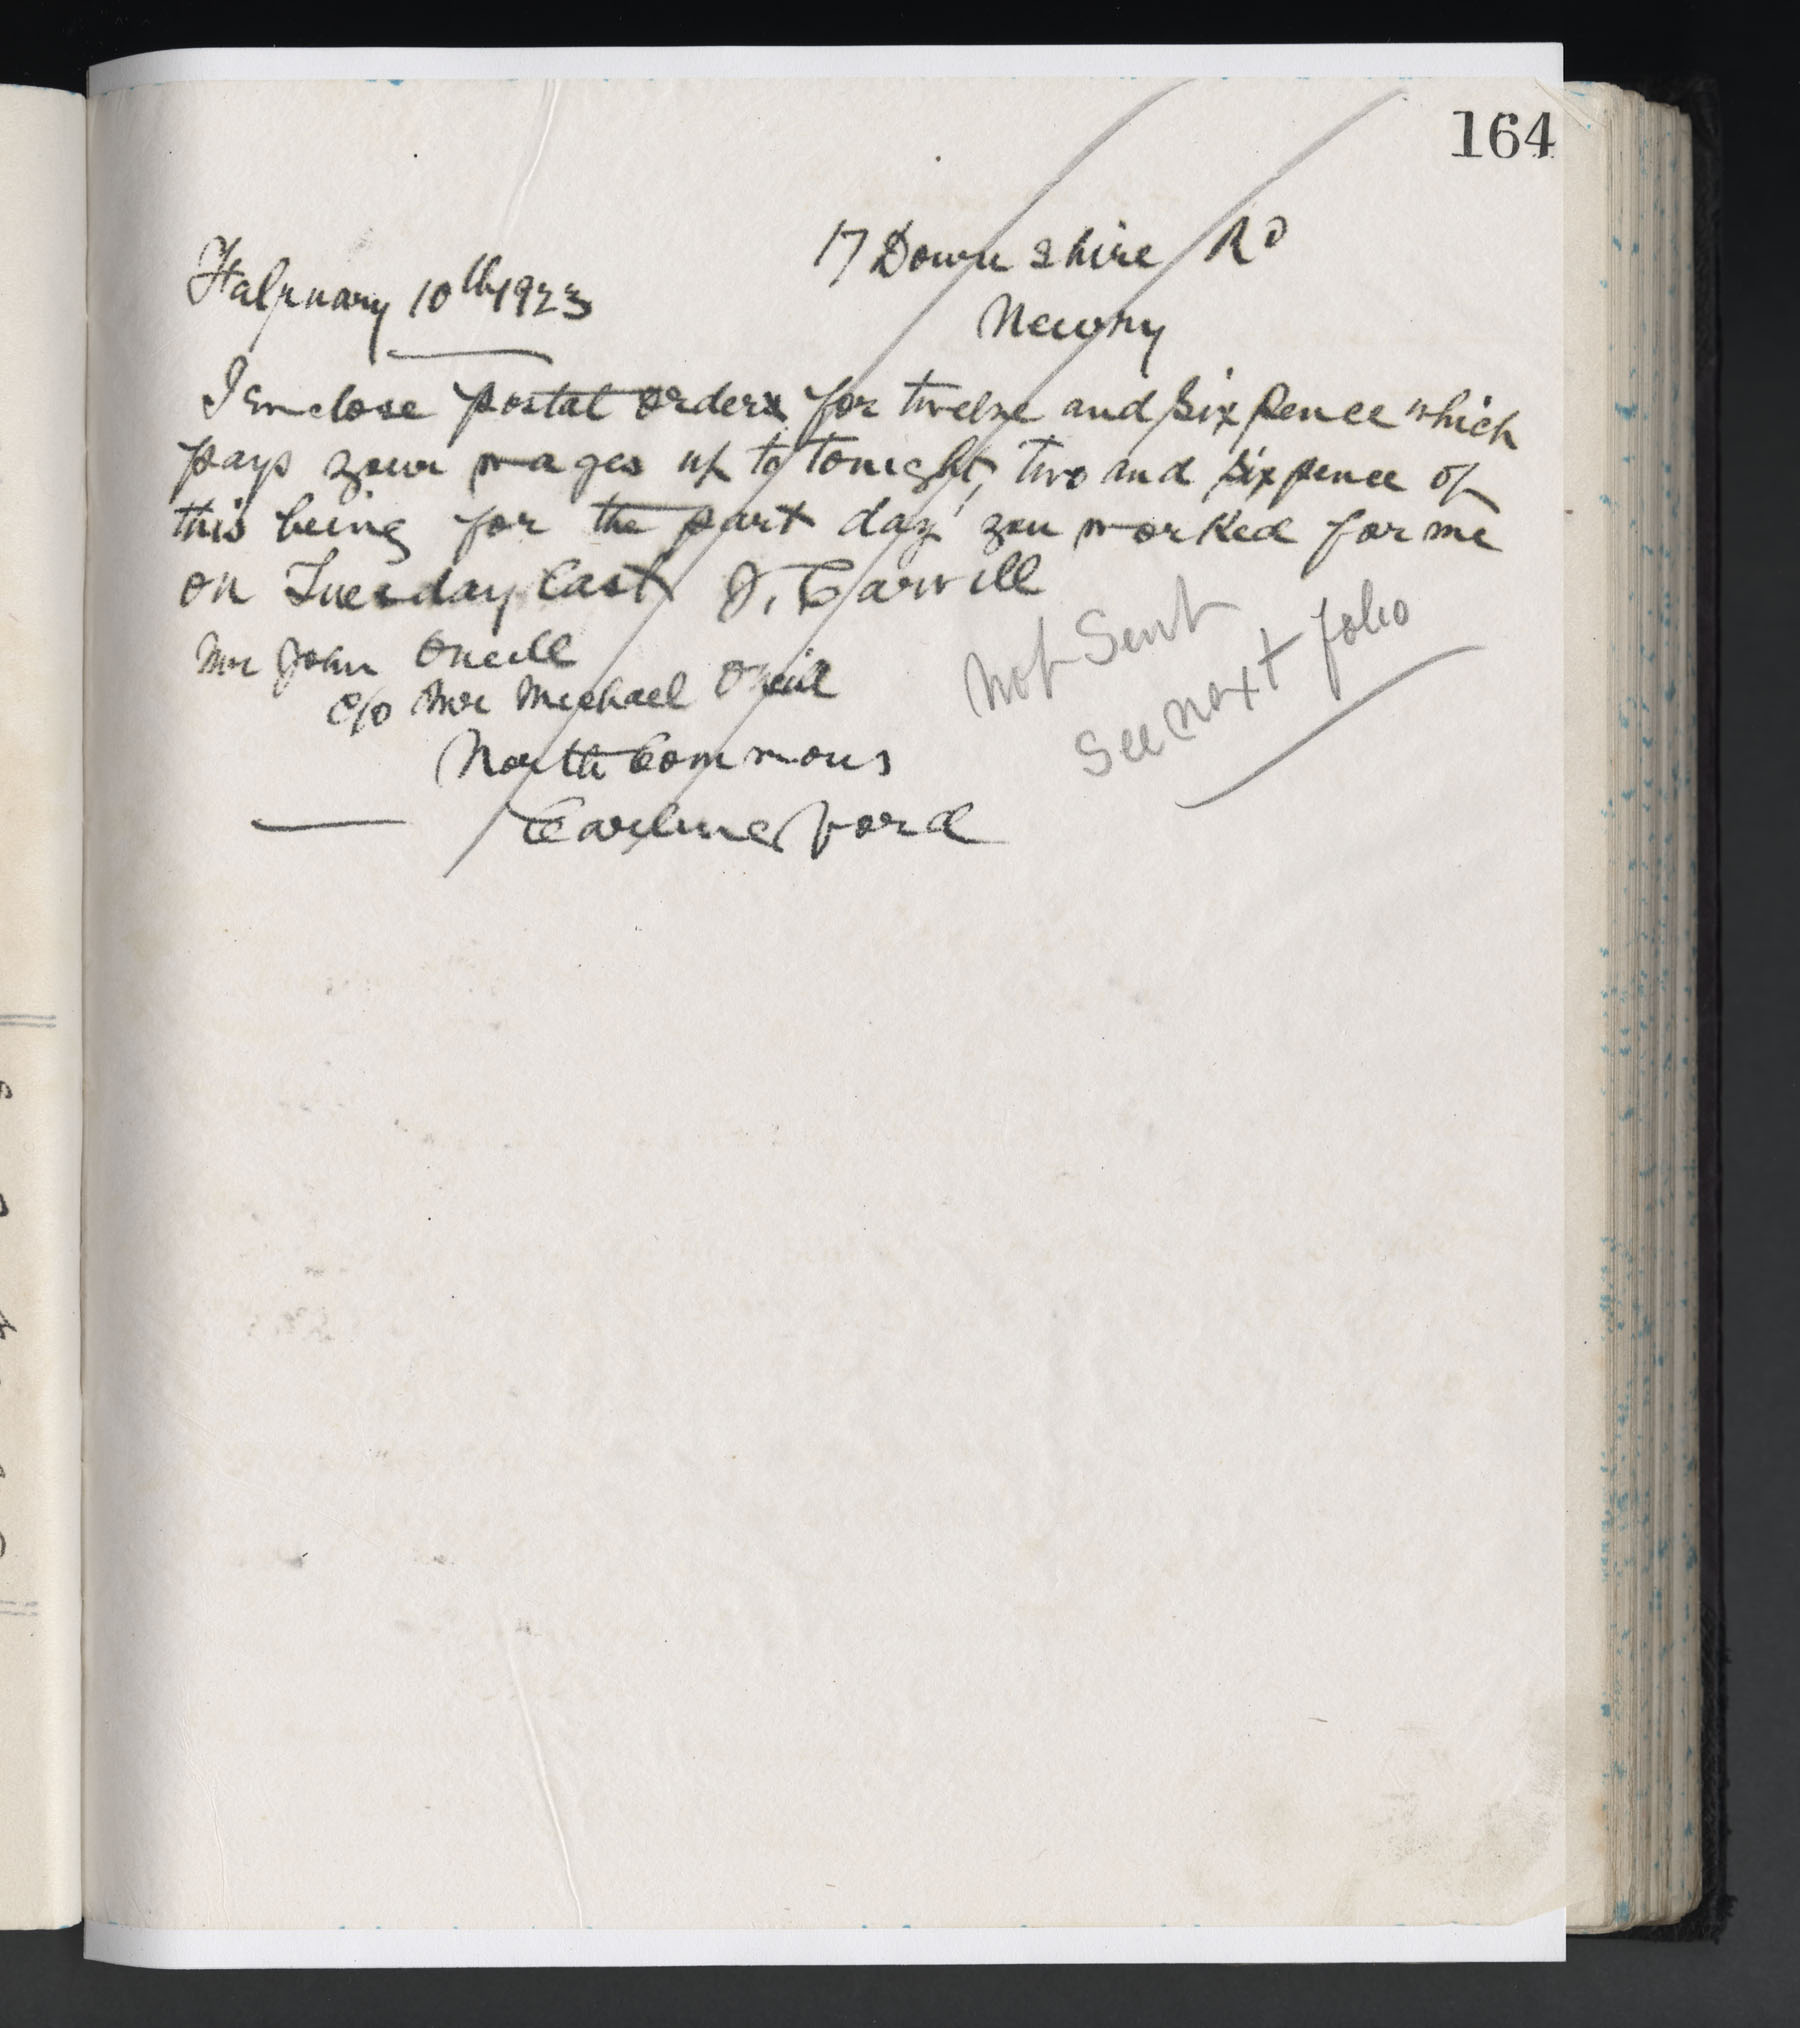 164
17 Downshire Rd
Newry
February 10th 1923
I Enclose postal orders for twelve and six pence which
pays your wages up to tonight, two and sixpence of
this being for the part day you worked for me
on Tuesday last J. Carvill
Mr John Oneill
c/o Mr Michael Oneill
North Commons
Carlingford
Not Sent
See next folio